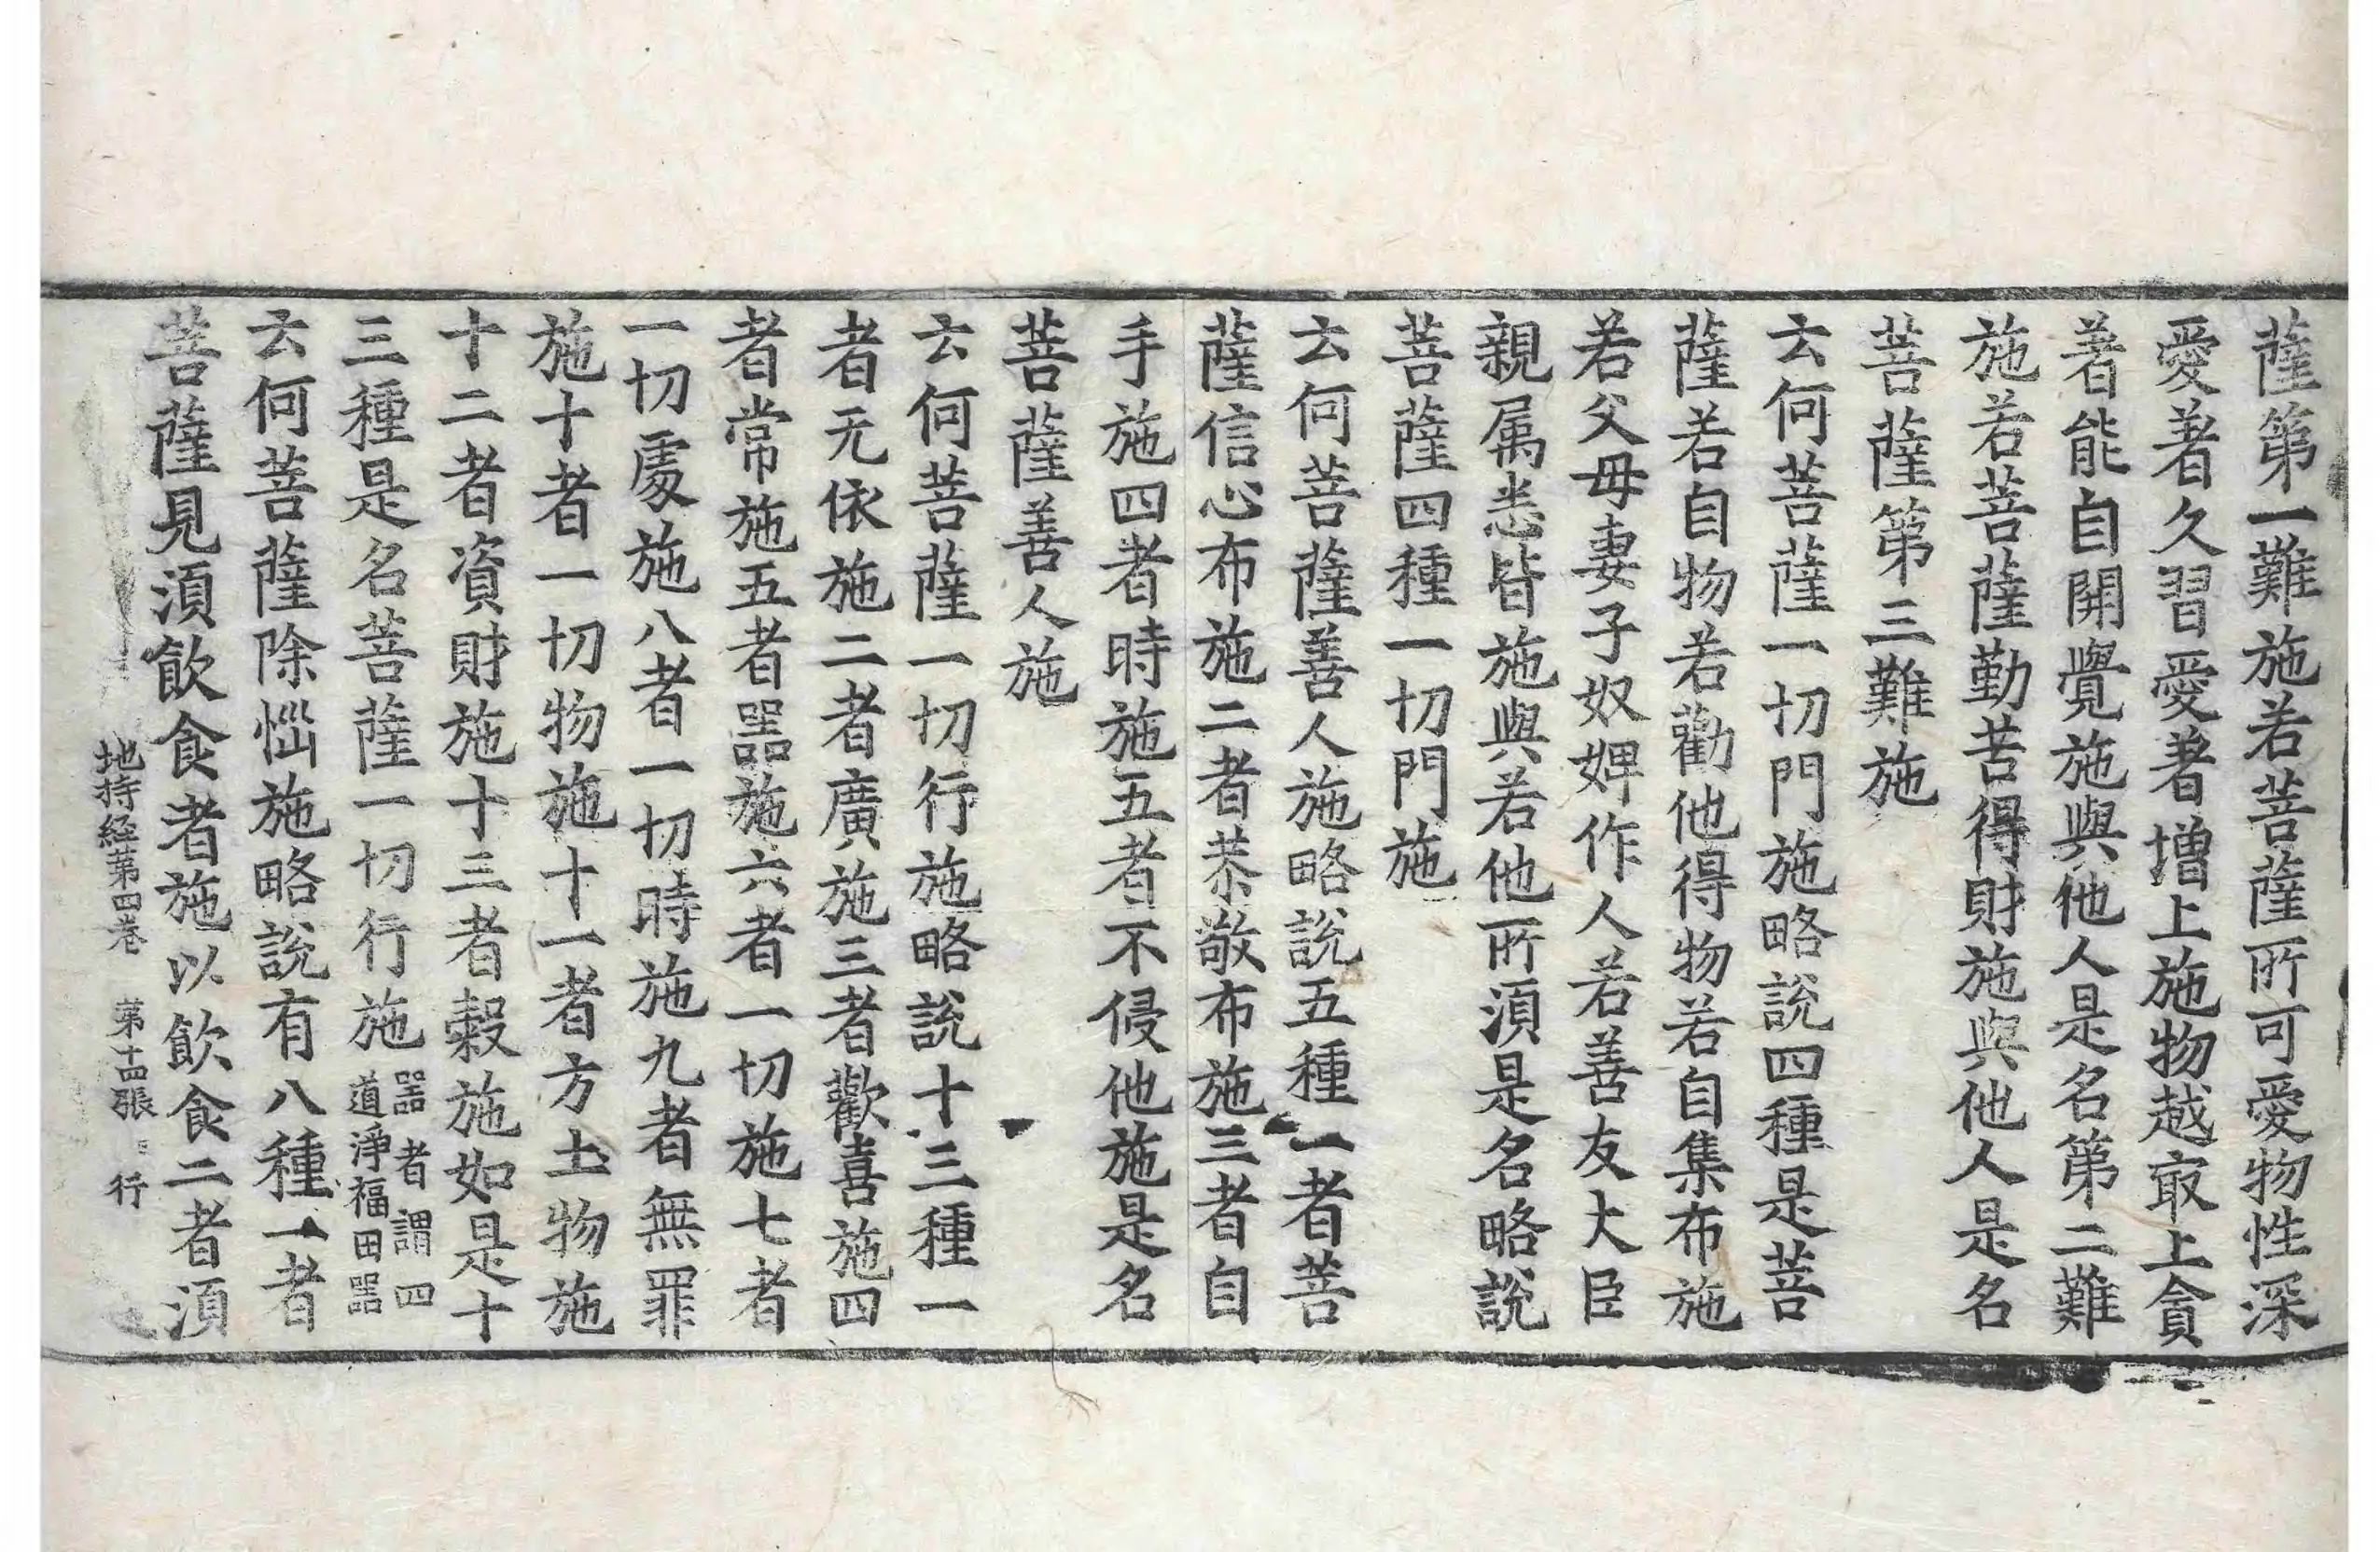 薩第一難施若菩薩所可愛物性深
愛著久習愛著增上施物越取上貪
著能自開覺施與他人是名第二難
施若菩薩勤苦得財施與他人是名
菩薩第三難施
云何菩薩一切門施略說四種是菩
薩若自物若勸他得物若自集布施
若父母妻子奴婢作人若善友大臣
親属悉皆施與若他所湏是名略說
菩薩四種一切門施
云何菩薩善人施略說五種一者菩
薩信心布施二者恭敬布施三者自
手施四者時施五者不侵他施是名
菩薩善人施
云何菩薩一切行施略說十三種一
者无依施二者廣施三者歡喜施四
者常施五者器施六者一切施七者
一切處施八者一切時施九者無罪
施十者一切物施十一者方土物施
十二者資財施十三者穀施如是十
三種是名菩薩一切行施器者謂四道淨福田器
云何菩薩除惱施略說有八種一者
菩薩見湏飲食者施以飲食二者湏
地持経第四卷 第十四張 行